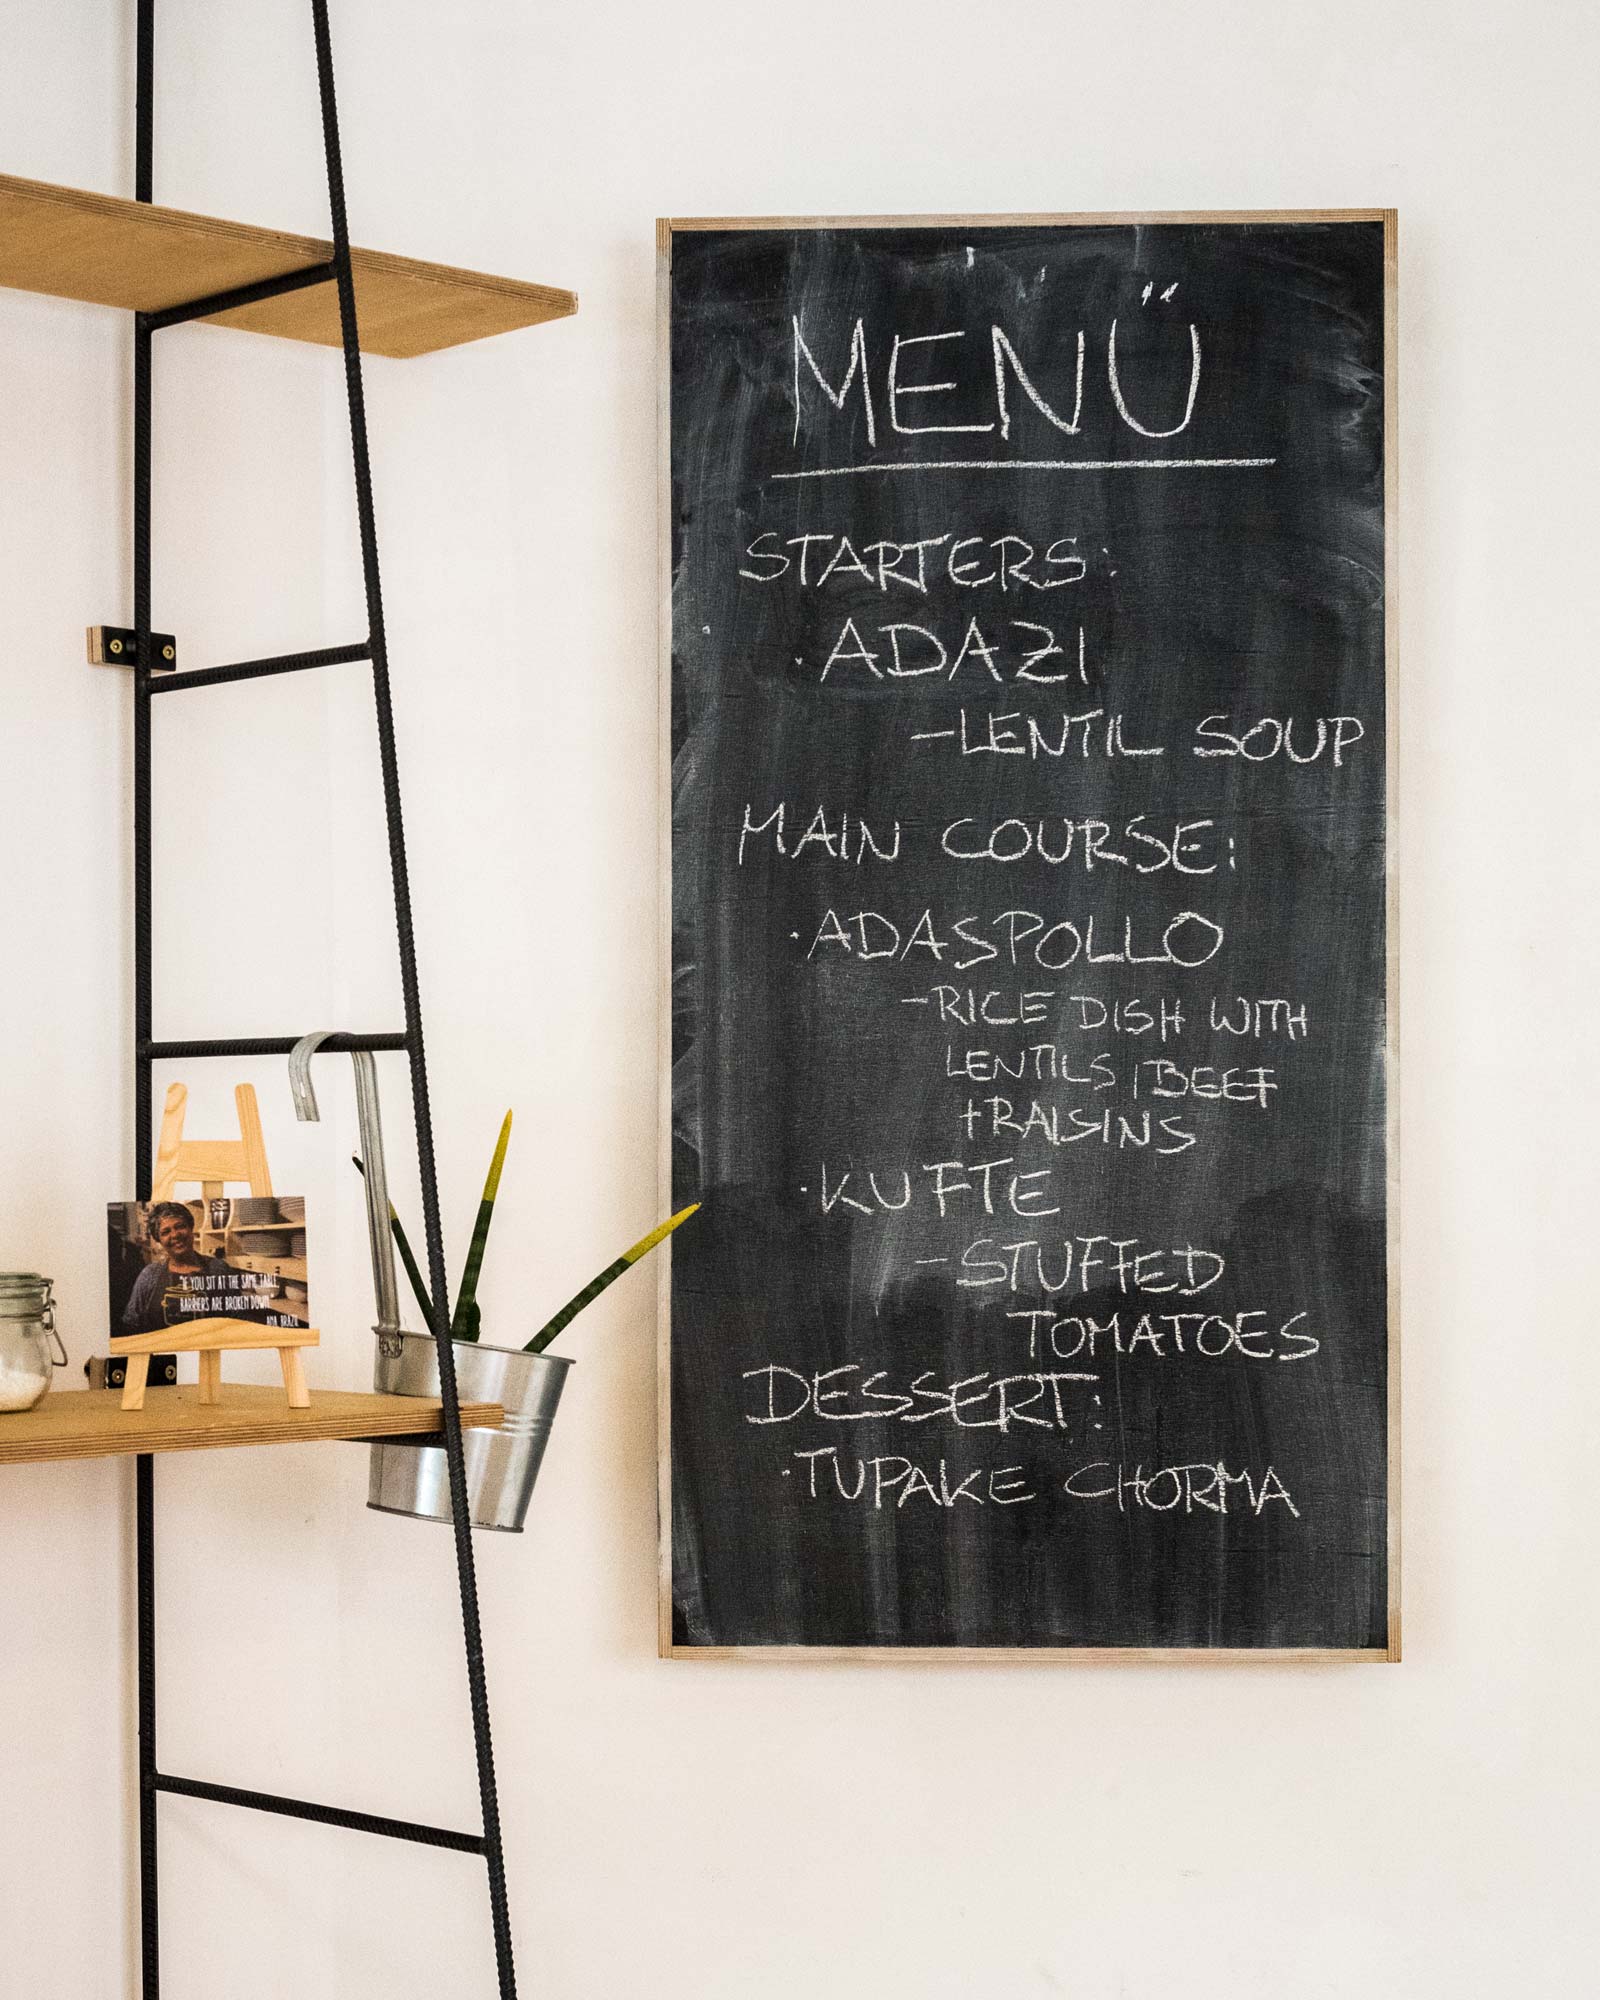 MENÜ
STARTERS:
· ADAZI
- LENTIL SOUP
MAIN COURSE:
· ADASPOLLO
- RICE DISH WITH
LENTILS, BEEF
+ RAISINS
· KUFTE
- STUFFED
TOMATOES
DESSERT:
· TUPAKE CHORMA
"IF YOU SIT AT THE SAME TABLE,
BARRIERS ARE BROKEN DOWN."
ANA, BRAZIL